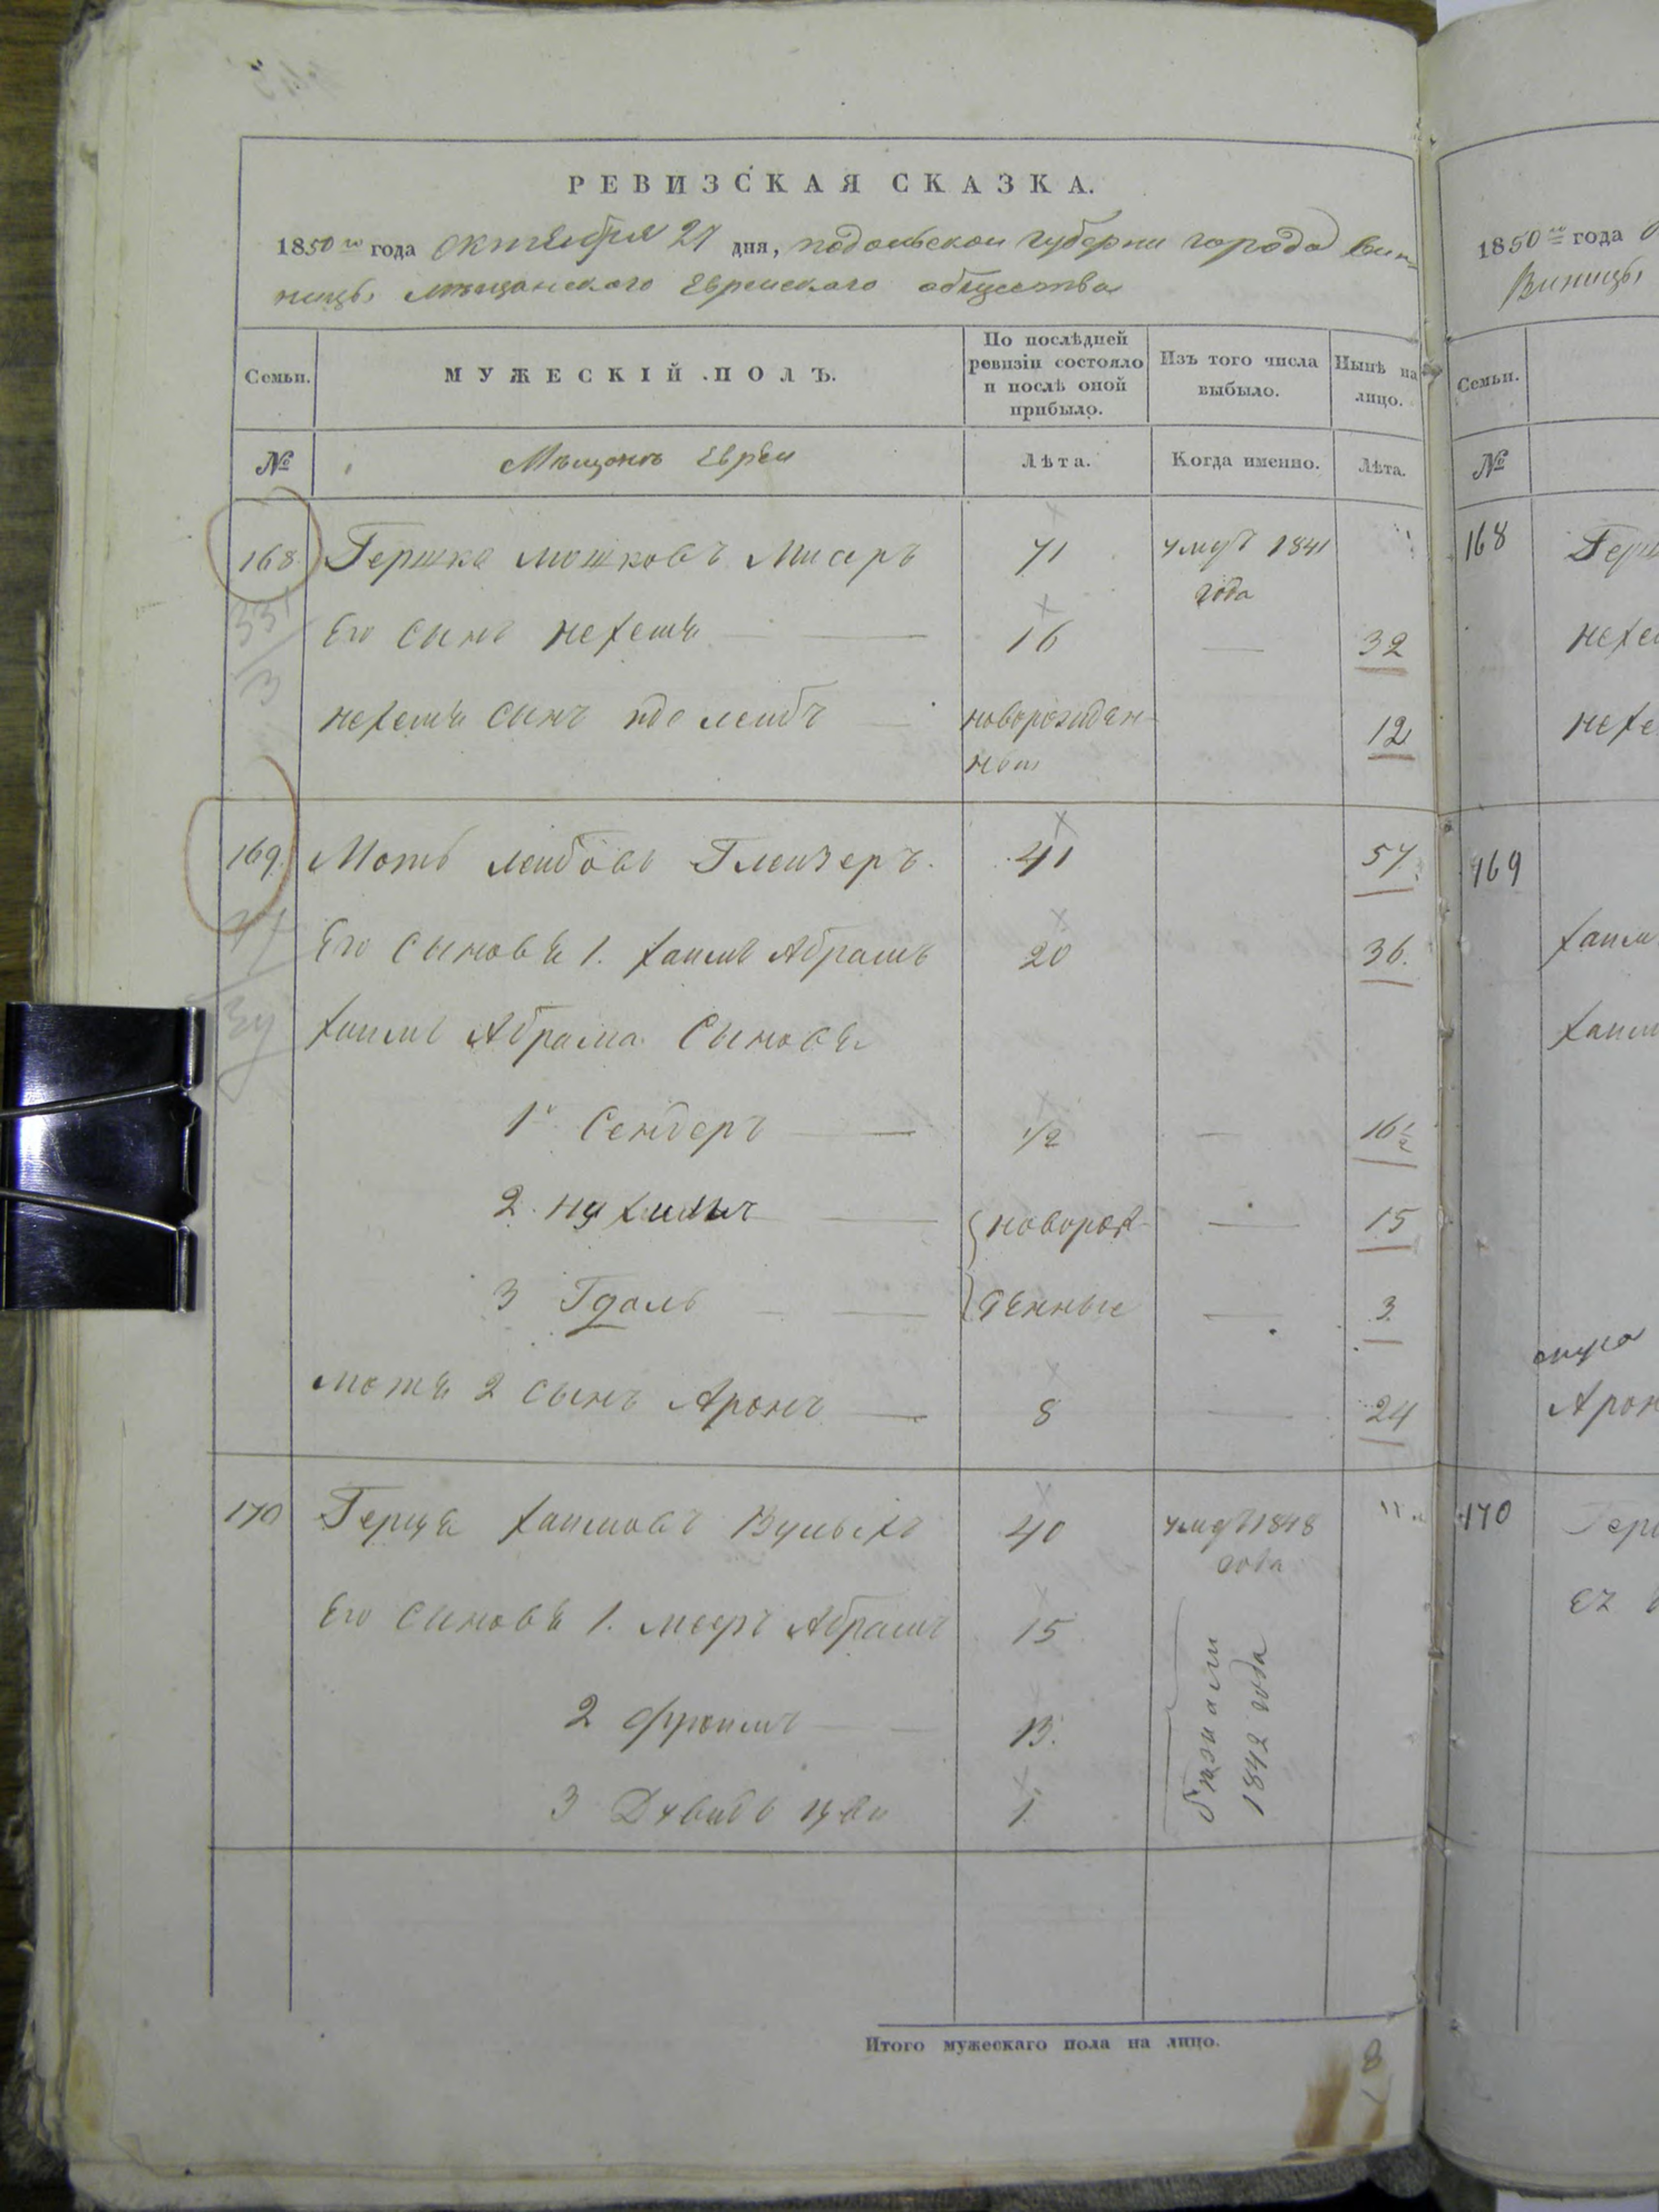 РЕВИЗСКАЯ СКАЗКА.
1850го года октября 27 дня, подольской губернии города Вин-
ницы мещанского Еврейского общества
Семьи.
МУЖЕСКІЙ ПОЛЪ.
По послѣдней ревизіи состояло и послѣ оной прибыло.
Изъ того числа выбыло.
Нынѣ на лицо.
№
Мещанъ Евреи
Лѣта.
Когда именно.
Лѣта.
168 Гершко мошковъ 71 умеръ 1841 года
Его сынъ нехемя 16 — 32
нехемя сынъ лейбъ новорожден-
ный 12
169. Мотя лейбовъ Глейзеръ. 41 57.
Его сыновья 1. хаимъ Абрамъ 20 36.
хаимъ Абрама сыновья
1й Сендеръ 1/2 — 16 1/2
2. нухимъ новорож- — 15
3 Гдаль денные — 3
мотя 2 сынъ Аронъ 8 — 24
170 Герца хаимовъ 40 умеръ 1848 года
Его сыновья 1. мееръ Абрамъ 15
2 фроимъ 13.
3 Дувидъ 1.
бежали
1842 года
Итого мужескаго пола на лицо.
8
1850го года
Винницы
Семьи.
№
168
169
170